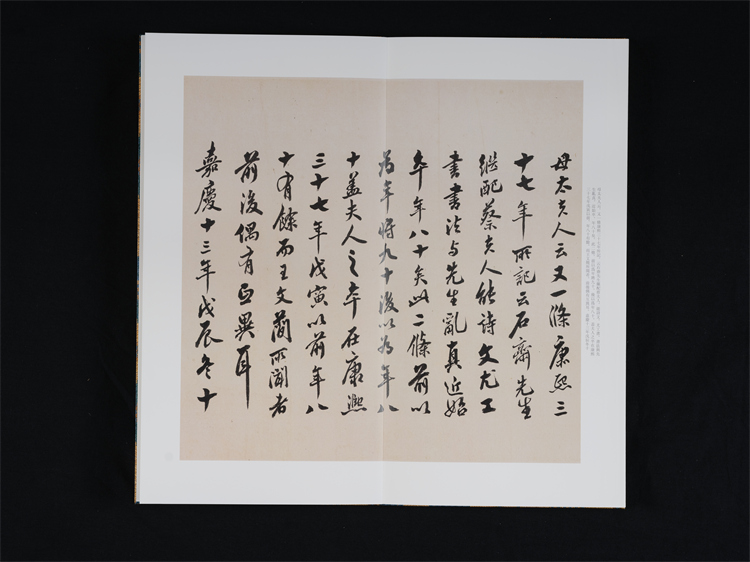 母太夫人云又一條康熙三
十七年所記云石齋先生
繼配蔡夫人能詩文尤工
書書法与先生亂真近始
卒年八十矣此二條前以
為年將九十後以為年八
十蓋夫人之卒在康熙
三十七年戊寅以前年八
十有餘而王文簡所聞者
前後偶有互異耳
嘉慶十三年戊辰冬十